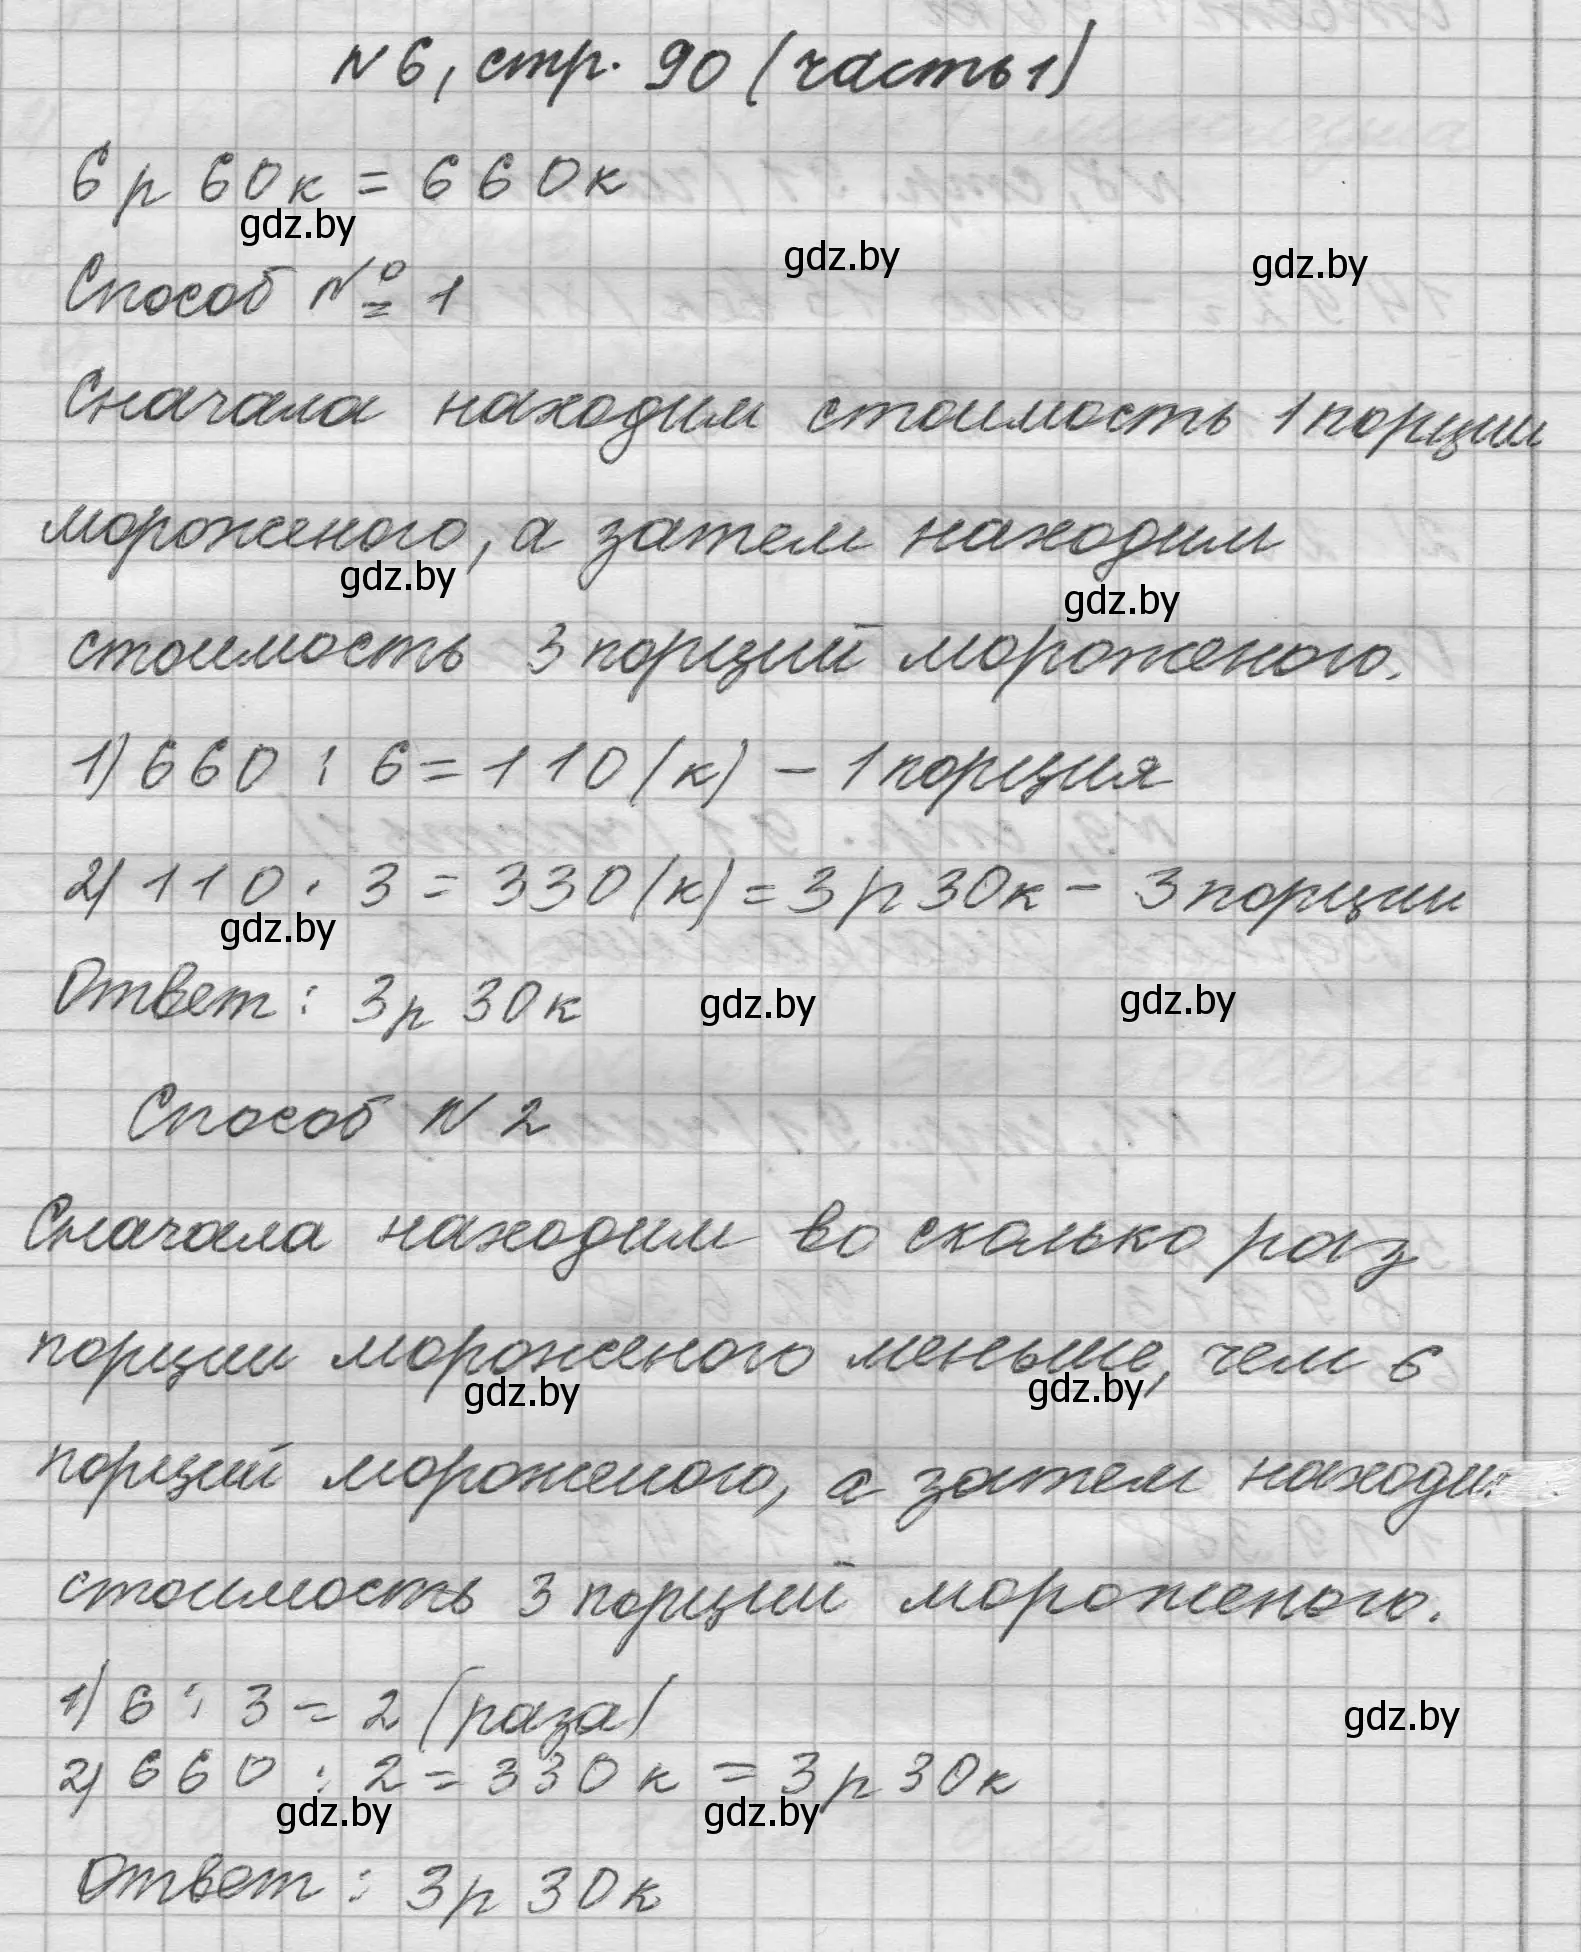 №6, стр. 90 (часть 1)
6 р 60 к = 660 к
gdz.by
gdz.by
gdz.by
Способ № 1
Сначала находим стоимость 1 порции
мороженого, а затем находим
gdz.by
gdz.by
стоимость 3 порций мороженого.
1) 660 : 6 = 110 (к) - 1 порция
2) 110 · 3 = 330 (к) = 3 р 30 к - 3 порции
gdz.by
Ответ : 3 р 30 к
gdz.by
gdz.by
Способ N 2
Сначала находим во сколько раз
порции мороженого меньше, чем 6
gdz.by
gdz.by
порций мороженого, а затем находи
стоимость 3 порций мороженого.
1) 6 : 3 = 2 (раза)
gdz.by
2) 660 : 2 = 330 к = 3 р 30 к
gdz.by
gdz.by
Ответ : 3 р 30 к